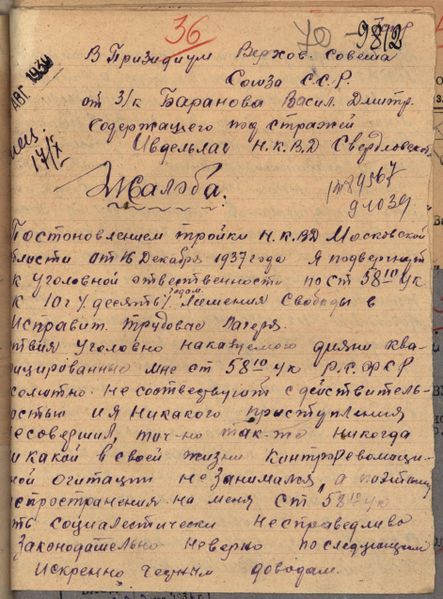 36
70 - 982
АВГ 1939
В Призидиум Верхов. Совета
Союза С.С.Р.
от з/к Баранова Васил. Дмитр.
содержащего под стражей
Ивдельлаг Н.К.В.Д Свердловской
17/X
Жалоба:
Постоновлением тройки Н.К.ВД Московской
бласти от 16 Декабря 1937 года я подвергнут
к уголовной отвественности по ст 58¹⁰ ук
к 10 г/ десять/ годам лишения Свободы в
Исправит. трудовые лагеря.
ствия уголовно наказуемого дияни ква-
ицированные мне ст 58¹⁰ ук Р.С.Ф.С.Р
солютно. не соответвуит с действитель-
остью и я никакого приступления
есовершил, точ-но так-то никогда
и какой в своей жизни контрреволюци-
ной огитации не занимался, а поэтому
спространения на меня ст 58¹⁰ ук
ть социалестически несправедливо
Законодательно неверно последующим
искренно честным доводам.